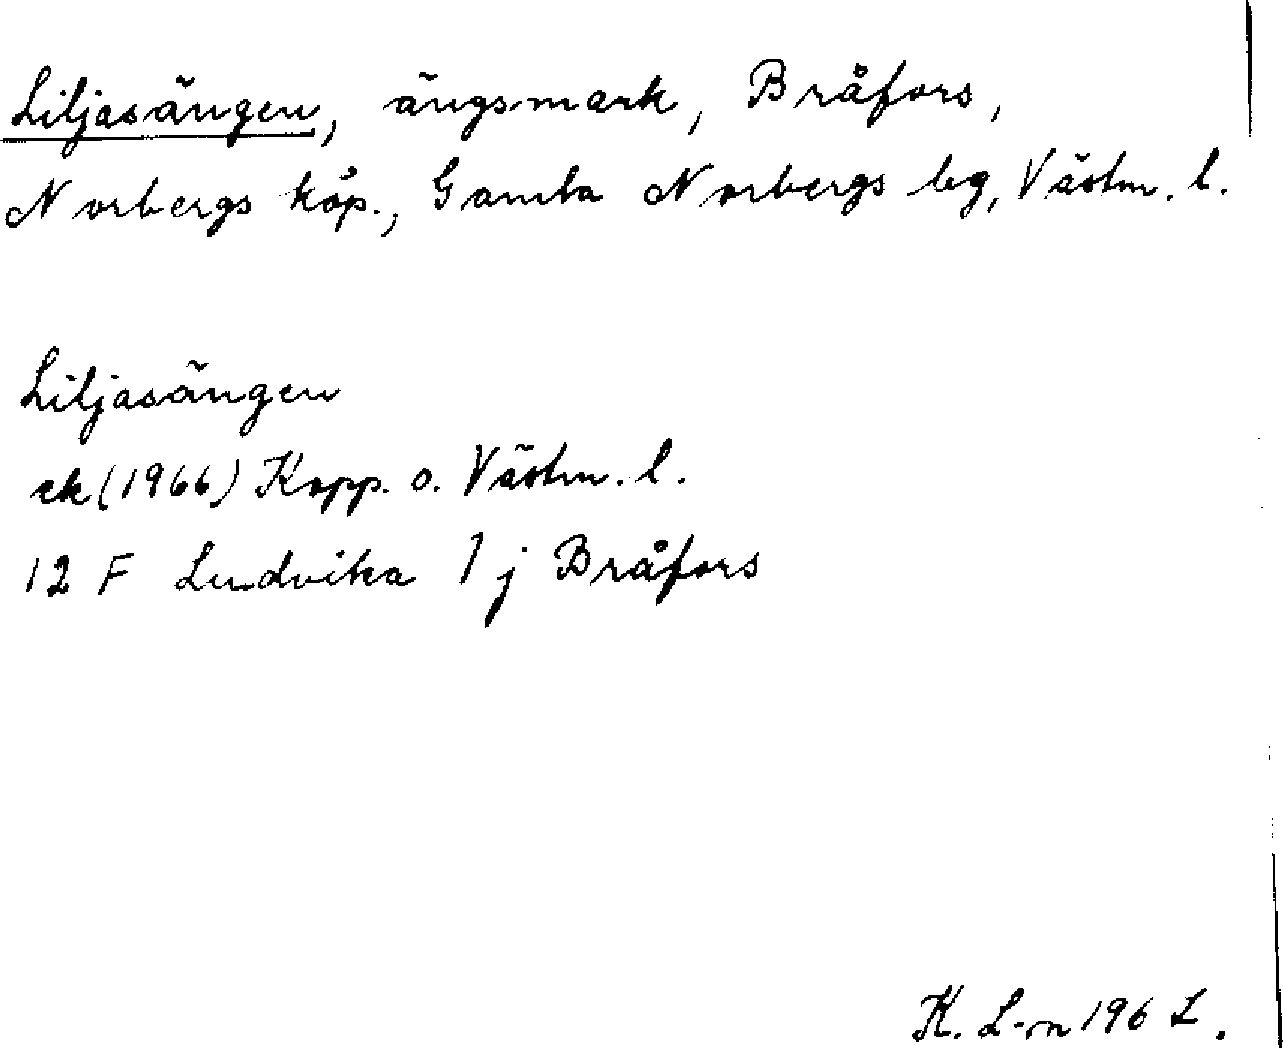 Liljasängen, ängsmark, Bråfors,
Norbergs köp., Gamla Norbergs bg, Västm. l.
Liljasängen
ek (1966) Kopp. o. Västm. l.
12 F Ludvika 1 j Bråfors
K. L-m 196